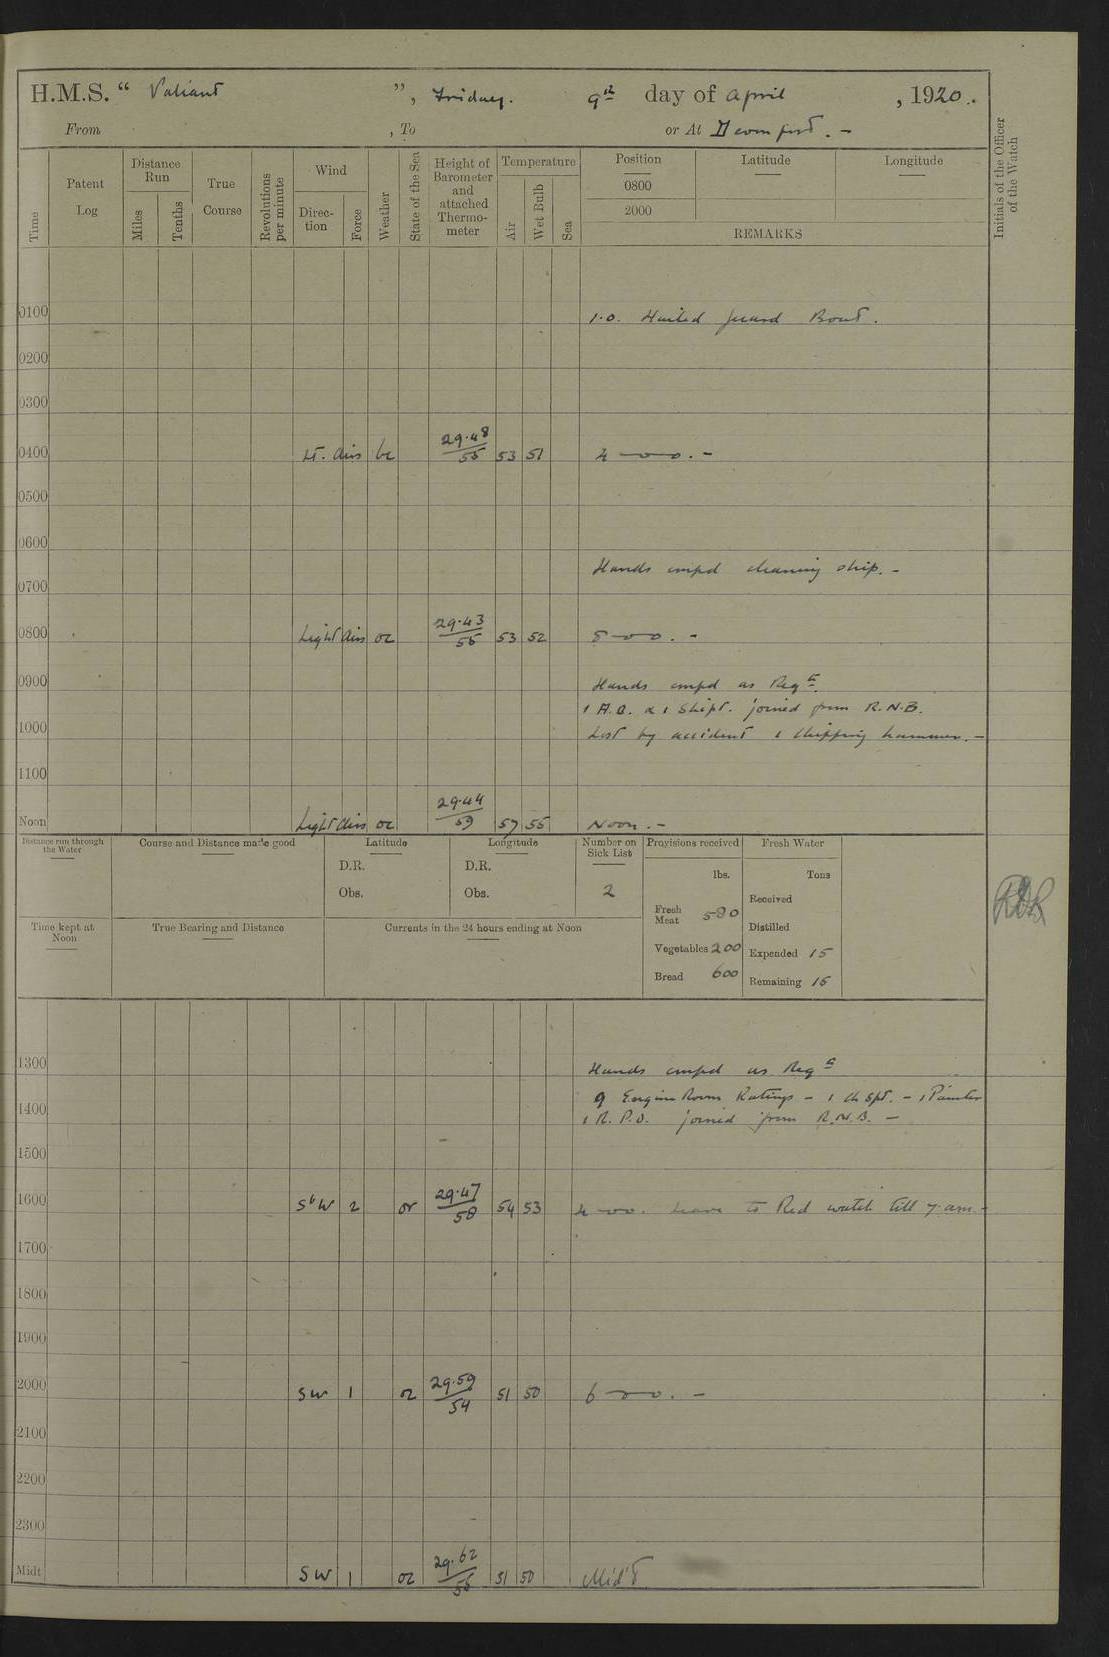 H.M.S. “ Valiant ”, Friday. 9th day of April , 1920.
From , To or At Devonport. -
Time
Patent Log
Distance Run
Miles
Tenths
True Course
Revolutions per minute
Wind
Direction
Force
Weather
State of the Sea
Height of Barometer and attached Thermometer
Temperature
Air
Wet Bulb
Sea
Position Latitude Longitude
0800
2000
REMARKS
Initials of the Officer of the Watch
0100 1.0. Hailed guard Boat.
0200
0300
0400 Lt. airs bc 29.48 55 53 51 4 . -
0500
0600
Hands empd cleaning ship. -
0700
0800 Light airs oc 29.43 55 53 52 . -
0900 Hands empd as Reqd
1 A.B. & 1 Shipt. joined from R.N.B.
1000 Lost by accident 1 chipping hammer. -
1100
Noon Light airs oc 29.44 59 57 55 Noon. -
Distance run through the Water
Course and Distance made good
Latitude
D.R.
Obs.
Longitude
D.R.
Obs.
Number on Sick List
2
Provisions received
lbs.
Fresh Meat 580
Vegetables 200
Bread 600
Fresh Water
Tons
Received
Distilled
Expended 15
Remaining 15
Time kept at Noon
True Bearing and Distance
Currents in the 24 hours ending at Noon
1300 Hands empd as Reqd
9 Engine Room Ratings - 1 Ch Spt. - 1 Painter
1400 1 R.P.O. joined from R.N.B. -
1500
1600 SbW 2 or 29.47 58 54 53 4 . Leave to Red watch till 7 am. -
1700
1800
1900
2000 SW 1 oc 29.59 54 51 50 . -
2100
2200
2300
Midt SW 1 oc 29.62 56 51 50 Mid't